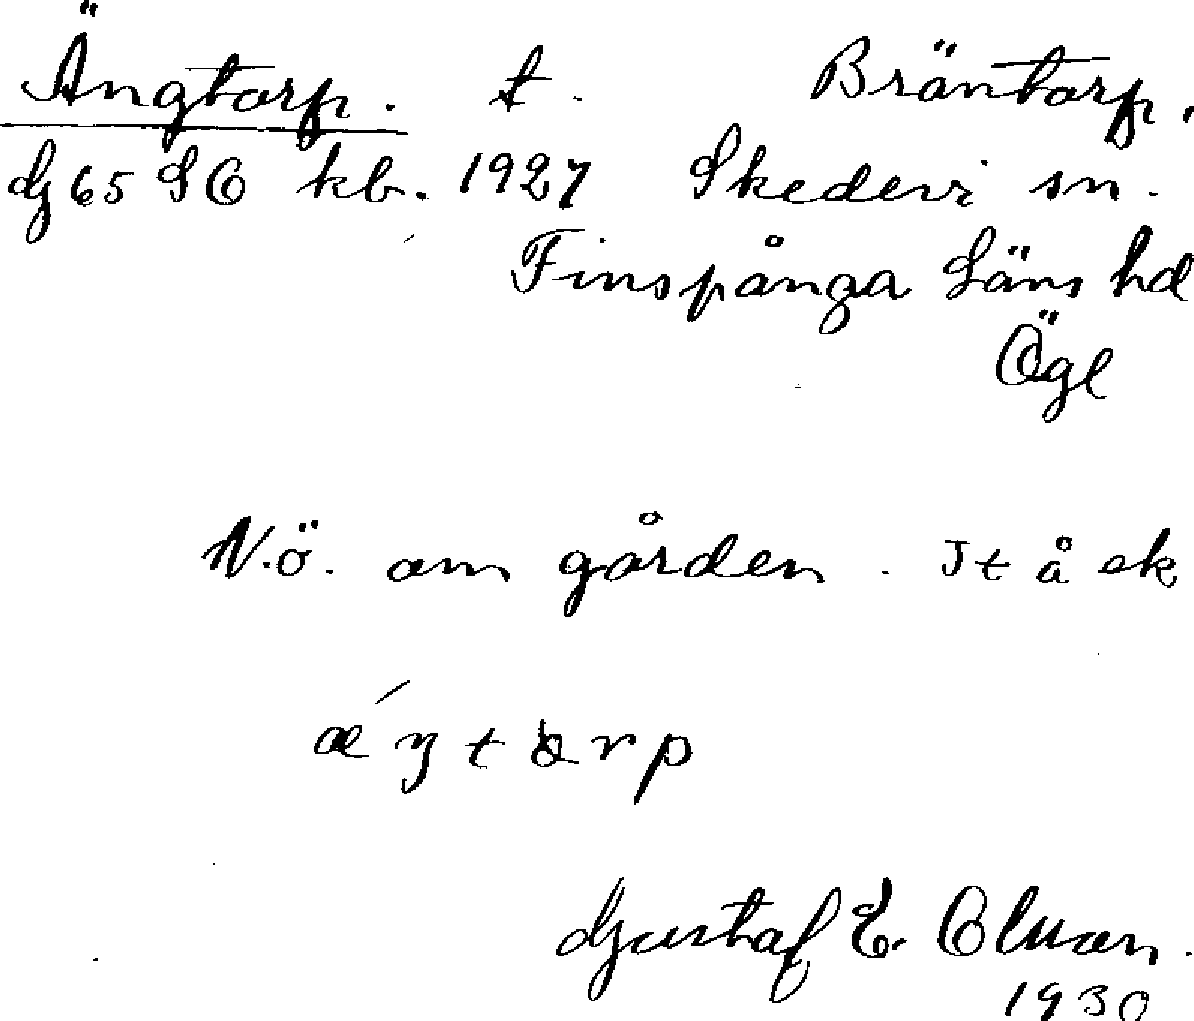 Ängtorp. t. Bräntorp.
G65 SO kb. 1927 Skedevi sn.
Finspånga läns hd
Ögl
N.ö. om gården. It å ek
ǽŋtorp
Gustaf E. Olsson.
1930